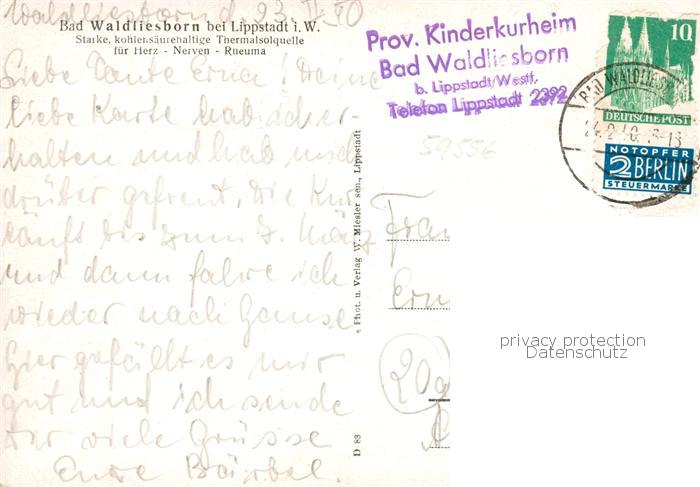 Waldliesborn d 23. II. 50
Bad Waldliesborn bei Lippstadt i. W.
Starke, kohlensäurehaltige Thermalsolquelle
für Herz - Nerven - Rheuma
Liebe Tante Erna! Deine
liebe Karte hab ich er-
halten und hab mich
drüber gefreut. Die Kur
läuft bis zum 7. März
und dann fahre ich
wieder nach Hause
Hier gefällt es mir
gut und ich sende
dir viele Grüsse
Eure Bärbel.
Phot. u. Verlag W. Miesler sen., Lippstadt
D 83
Prov. Kinderkurheim
Bad Waldliesborn
b. Lippstadt/Westf.
Telefon Lippstadt 2392
59556
10
DEUTSCHE POST
NOTOPFER
2 BERLIN
STEUERMARKE
BAD WALDLIES
Frau
Ern
20g
privacy protection
Datenschutz